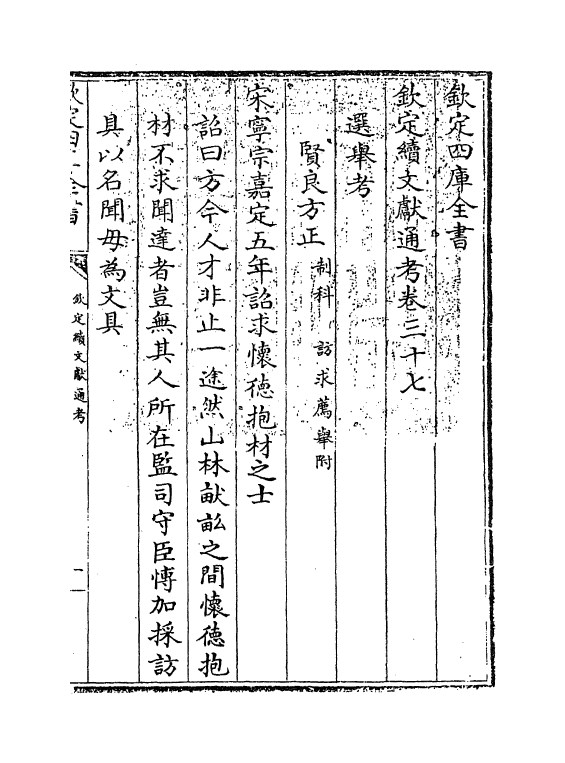 欽定四庫全書
欽定續文獻通考卷三十七
選舉考
賢良方正 制科 訪求薦舉附
宋寧宗嘉定五年詔求懷徳抱材之士
詔曰方今人才非止一途然山林畎畝之間懷徳抱
材不求聞達者豈無其人所在監司守臣愽加採訪
具以名聞毋為文具
欽定四庫全書
欽定續文獻通考
一